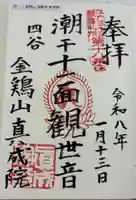 奉拝
令和八年
一月十三日
潮干十一面観世音
四谷
金鶏山真成院